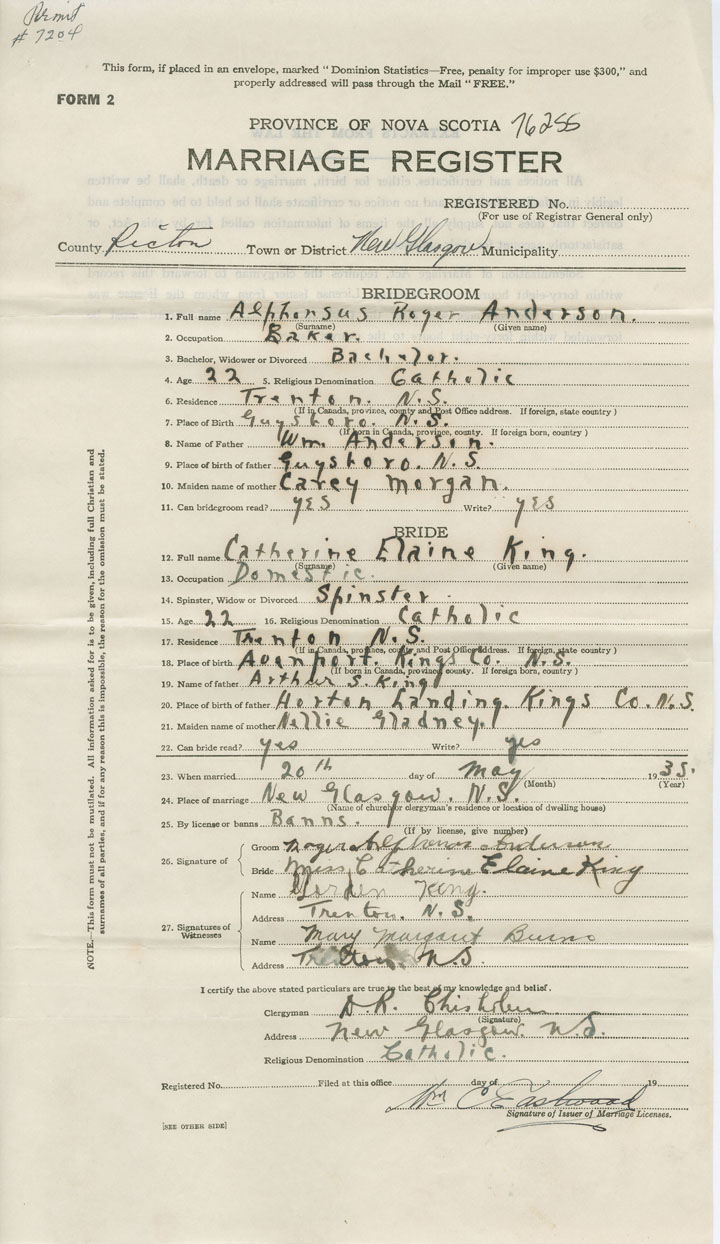 Permit
# 7204
This form, if placed in an envelope, marked "Dominion Statistics—Free, penalty for improper use $300," and
properly addressed will pass through the Mail "FREE."
FORM 2
PROVINCE OF NOVA SCOTIA 76255
MARRIAGE REGISTER
REGISTERED No.
(For use of Registrar General only)
County Pictou Town or District New Glasgow Municipality
BRIDEGROOM
1. Full name Alphonsus Roger Anderson.
(Surname) (Given name)
2. Occupation Baker.
3. Bachelor, Widower or Divorced Bachelor.
4. Age 22 5. Religious Denomination Catholic
6. Residence Trenton. N.S.
(If in Canada, province, county and Post Office address. If foreign, state country)
7. Place of Birth Guysboro. N.S.
(If born in Canada, province, county. If foreign born, country)
8. Name of Father Wm. Anderson.
9. Place of birth of father Guysboro. N.S.
10. Maiden name of mother Carey Morgan.
11. Can bridegroom read? yES Write? yES
BRIDE
12. Full name Catherine Elaine King.
(Surname) (Given name)
13. Occupation Domestic.
14. Spinster, Widow or Divorced Spinster
15. Age 22 16. Religious Denomination Catholic
17. Residence Trenton N.S.
(If in Canada, province, county and Post Office address. If foreign, state country)
18. Place of birth Avenport. Kings Co. N.S.
(If born in Canada, province, county. If foreign born, country)
19. Name of father Arthur S. King
20. Place of birth of father Horton Landing. Kings Co. N.S.
21. Maiden name of mother Nellie Gladney.
22. Can bride read? yes Write? yes
23. When married 20th day of May 1935.
(Month) (Year)
24. Place of marriage New Glasgow. N.S.
(Name of church or clergyman's residence or location of dwelling house)
25. By license or banns Banns.
(If by license, give number)
26. Signature of
Groom Roger Alphonsus Anderson
Bride Miss Catherine Elaine King
27. Signatures of Witnesses
Name Gorden King.
Address Trenton. N.S.
Name Mary Margaret Burns
Address Trenton N.S.
I certify the above stated particulars are true to the best of my knowledge and belief.
Clergyman D.R. Chisholm
(Signature)
Address New Glasgow. N.S.
Religious Denomination Catholic.
Registered No. Filed at this office day of 19
Wm C Eastwood
Signature of Issuer of Marriage Licenses.
[SEE OTHER SIDE]
NOTE.—This form must not be mutilated. All information asked for is to be given, including full Christian and
surnames of all parties, and if for any reason this is impossible, the reason for the omission must be stated.